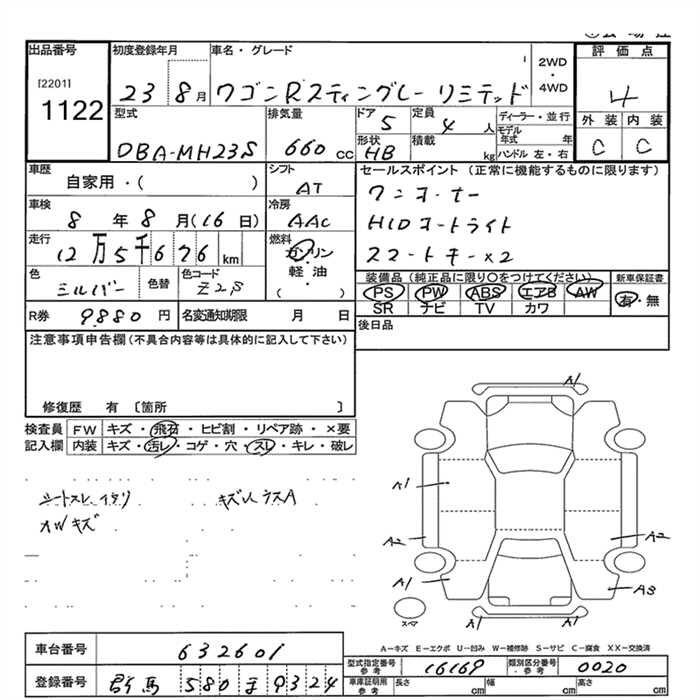 出品番号 初度登録年月 車名・グレード 2WD・4WD 評価点
[2201]
1122
23 8月 ワゴンRスティングレー リミテッド 4
型式 排気量 ドア 定員 ディーラー・並行 外装 内装
DBA-MH23S 660cc 5 4人 モデル年式 年 C C
形状 積載 kg ハンドル 左・右
HB
車歴 シフト セールスポイント (正常に機能するものに限ります)
自家用・( ) AT ワンオーナー
車検 冷房 HIDオートライト
8年8月(16日) AAC スマートキー×2
走行 燃料
12万5千676km ガソリン 軽油 ( )
装備品 (純正品に限り○をつけてください) 新車保証書
色 色替 色コード PS PW ABS エアB AW 有・無
シルバー Z2S SR ナビ TV カワ
R券 9880円 名変通知期限 月 日 後日品
注意事項申告欄 (不具合内容等は具体的に記入して下さい)
修復歴 有 〔箇所 〕
検査員 FW キズ・飛石・ヒビ割・リペア跡・×要
記入欄 内装 キズ・汚レ・コゲ・穴・スレ・キレ・破レ
シートスレ キズ A
AWキズ
A1
A1
A2 A2
A1 A3
スペア A1 A1
A-キズ E-エクボ U-凹み W-補修跡 S-サビ C-腐食 XX-交換済
車台番号 632601
型式指定番号 参考 16169 類別区分番号 参考 0020
登録番号 群馬 580 9324
車庫証明用 参考 長さ cm 幅 cm 高さ cm